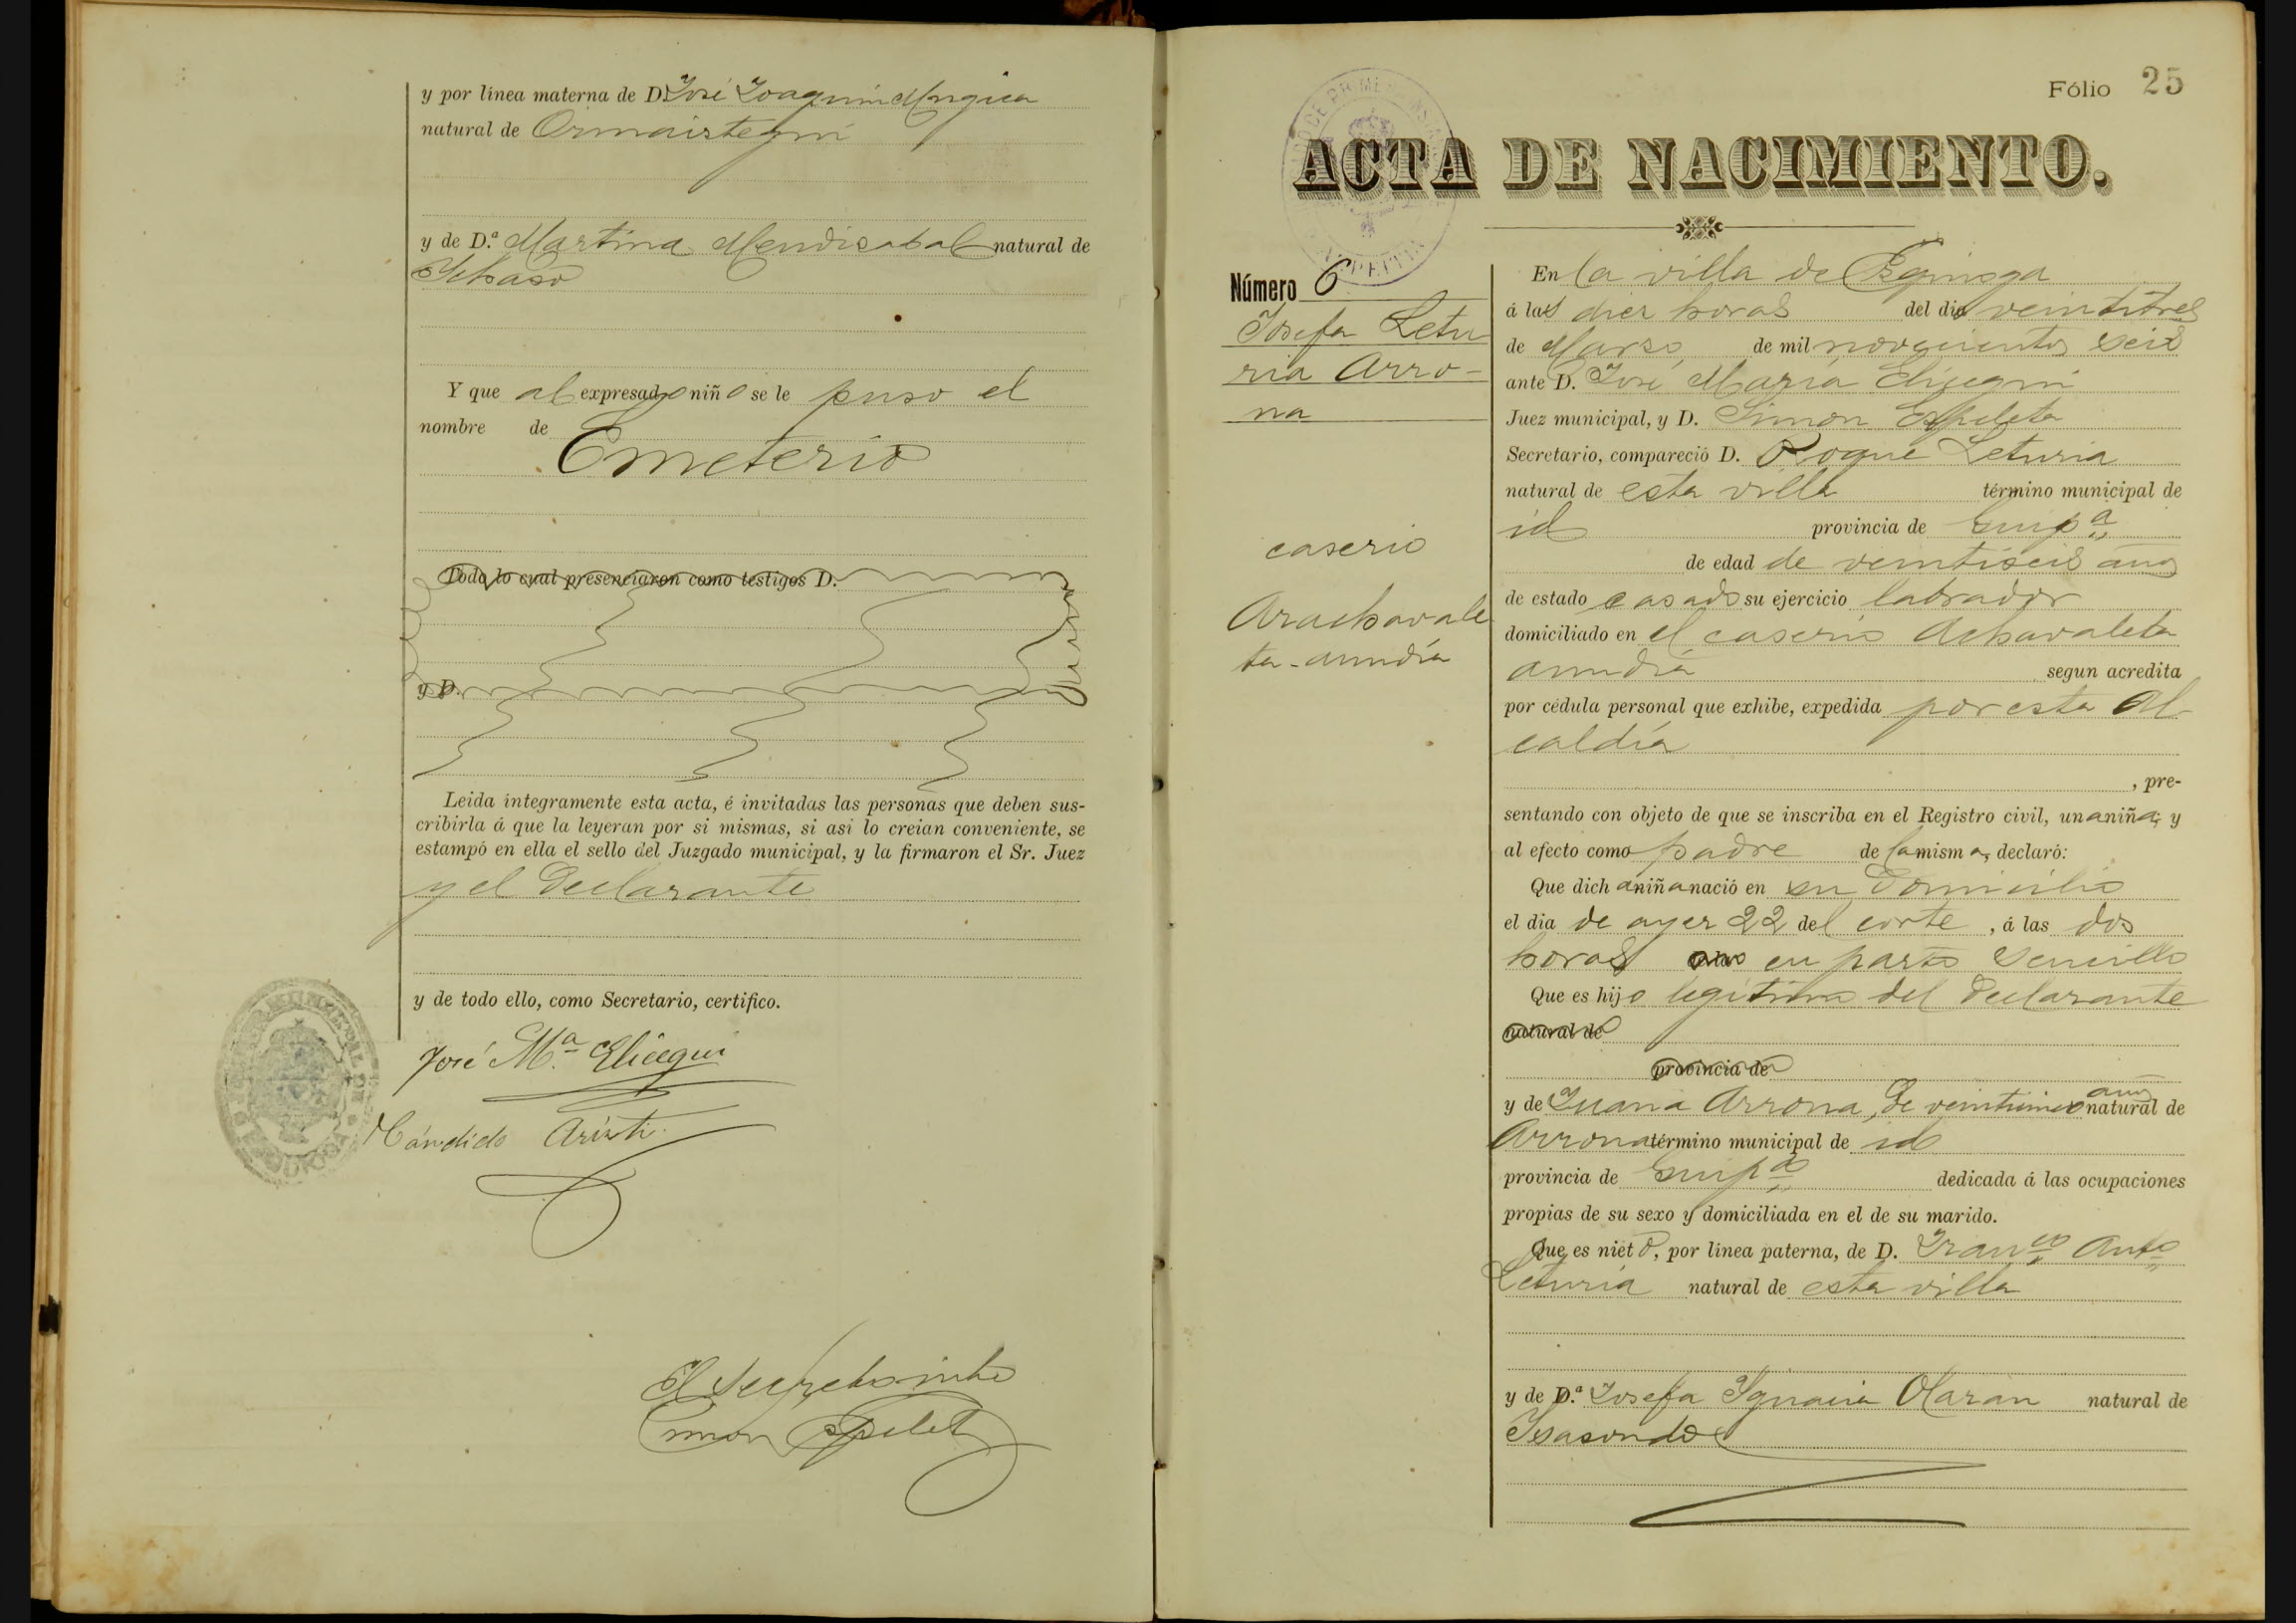 y por línea materna de D. José Joaquin Mugica
natural de Ormaiztegui
y de D.ª Martina Mendizabal natural de
Ichaso
Y que al expresado niño se le puso el
nombre de
Emeterio
Todo lo cual presenciaron como testigos D.
y D.
Leida íntegramente esta acta, é invitadas las personas que deben sus-
cribirla á que la leyeran por si mismas, si asi lo creian conveniente, se
estampó en ella el sello del Juzgado municipal, y la firmaron el Sr. Juez
y el Declarante
y de todo ello, como Secretario, certifico.
José M.ª Elicegui
Cándido Aristi
El Secretario
Simon Espeleta
Fólio 25
ACTA DE NACIMIENTO.
Número 6
Josefa Letu-
ria Arro-
na
caserio
Arachavale
ta-aundía
En la villa de Ezquioga
á las diez horas del dia veintitres
de Marzo de mil novecientos seis
ante D. José María Elicegui
Juez municipal, y D. Simon Espeleta
Secretario, compareció D. Roque Leturia
natural de esta villa término municipal de
id provincia de Guip.ª
de edad de veintiseis años
de estado casado su ejercicio labrador
domiciliado en el caserio Achavaleta
aundía segun acredita
por cédula personal que exhibe, expedida por esta Al-
caldía
, pre-
sentando con objeto de que se inscriba en el Registro civil, una niña; y
al efecto como padre de la misma, declaró:
Que dicha niña nació en su domicilio
el dia de ayer 22 del corte, á las dos
horas en parto sencillo
Que es hijo legitimo del Declarante
natural de
provincia de
y de Juana Arrona, de años natural de
Arrona término municipal de id
provincia de Guip.ª dedicada á las ocupaciones
propias de su sexo y domiciliada en el de su marido.
Que es nieto, por línea paterna, de D. Fran.co Ant.o
Leturia natural de esta villa
y de D.ª Josefa Ignacia Olaran natural de
Isasondo